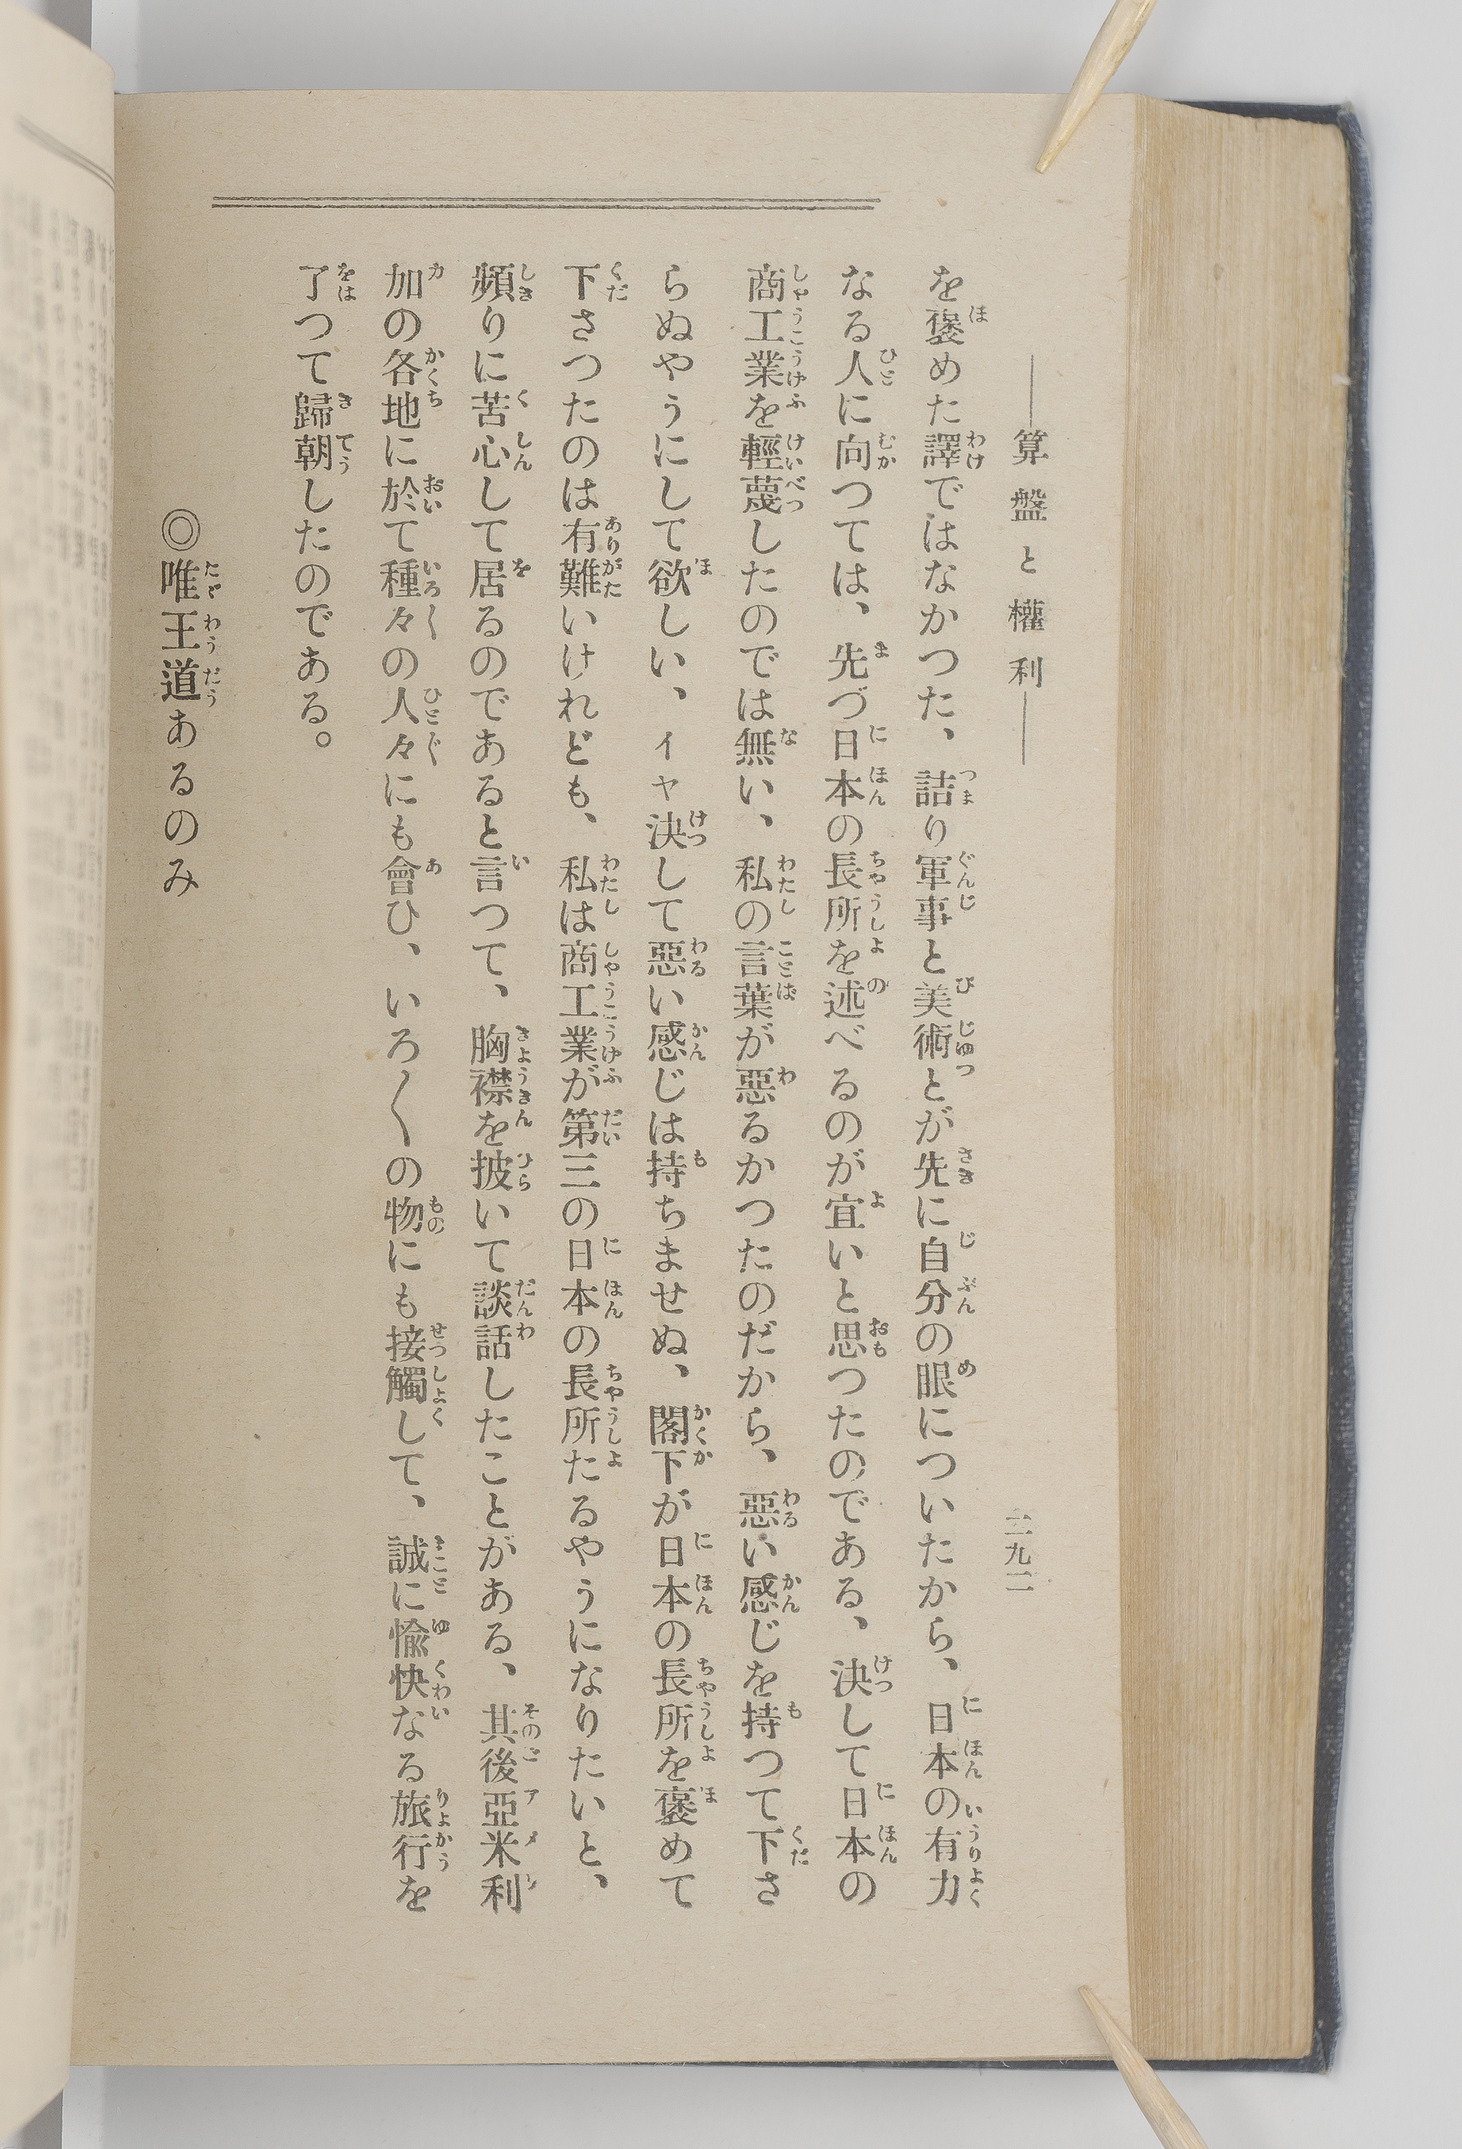 ―算盤と權利―
二九二
を褒めた譯ではなかつた、詰り軍事と美術とが先に自分の眼についたから、日本の有力
なる人に向つては、先づ日本の長所を述べるのが宜いと思つたのである、決して日本の
商工業を輕蔑したのでは無い、私の言葉が惡るかつたのだから、惡い感じを持つて下さ
らぬやうにして欲しい、イヤ決して惡い感じは持ちませぬ、閣下が日本の長所を褒めて
下さつたのは有難いけれども、私は商工業が第三の日本の長所たるやうになりたいと、
頻りに苦心して居るのであると言つて、胸襟を披いて談話したことがある、其後亞米利
加の各地に於て種々の人々にも會ひ、いろ〱の物にも接觸して、誠に愉快なる旅行を
了つて歸朝したのである。
◎唯王道あるのみ